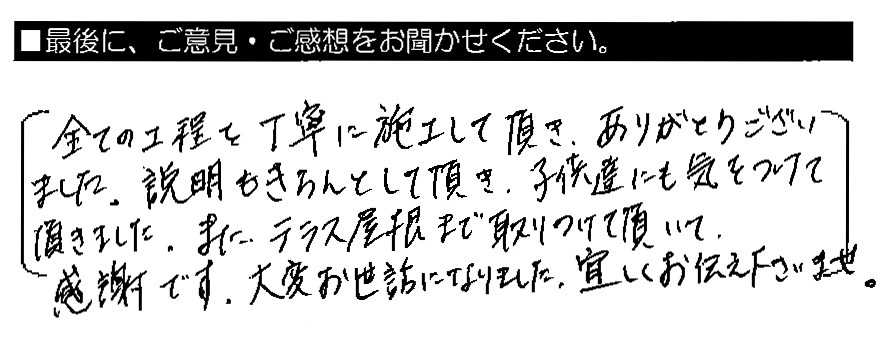 ■最後に、ご意見・ご感想をお聞かせください。
全ての工程を丁寧に施工して頂き、ありがとうござい
ました。説明もきちんとして頂き、子供達にも気をつけて
頂きました。また、テラス屋根まで取りつけて頂いて、
感謝です。大変お世話になりました。宜しくお伝え下さいませ。